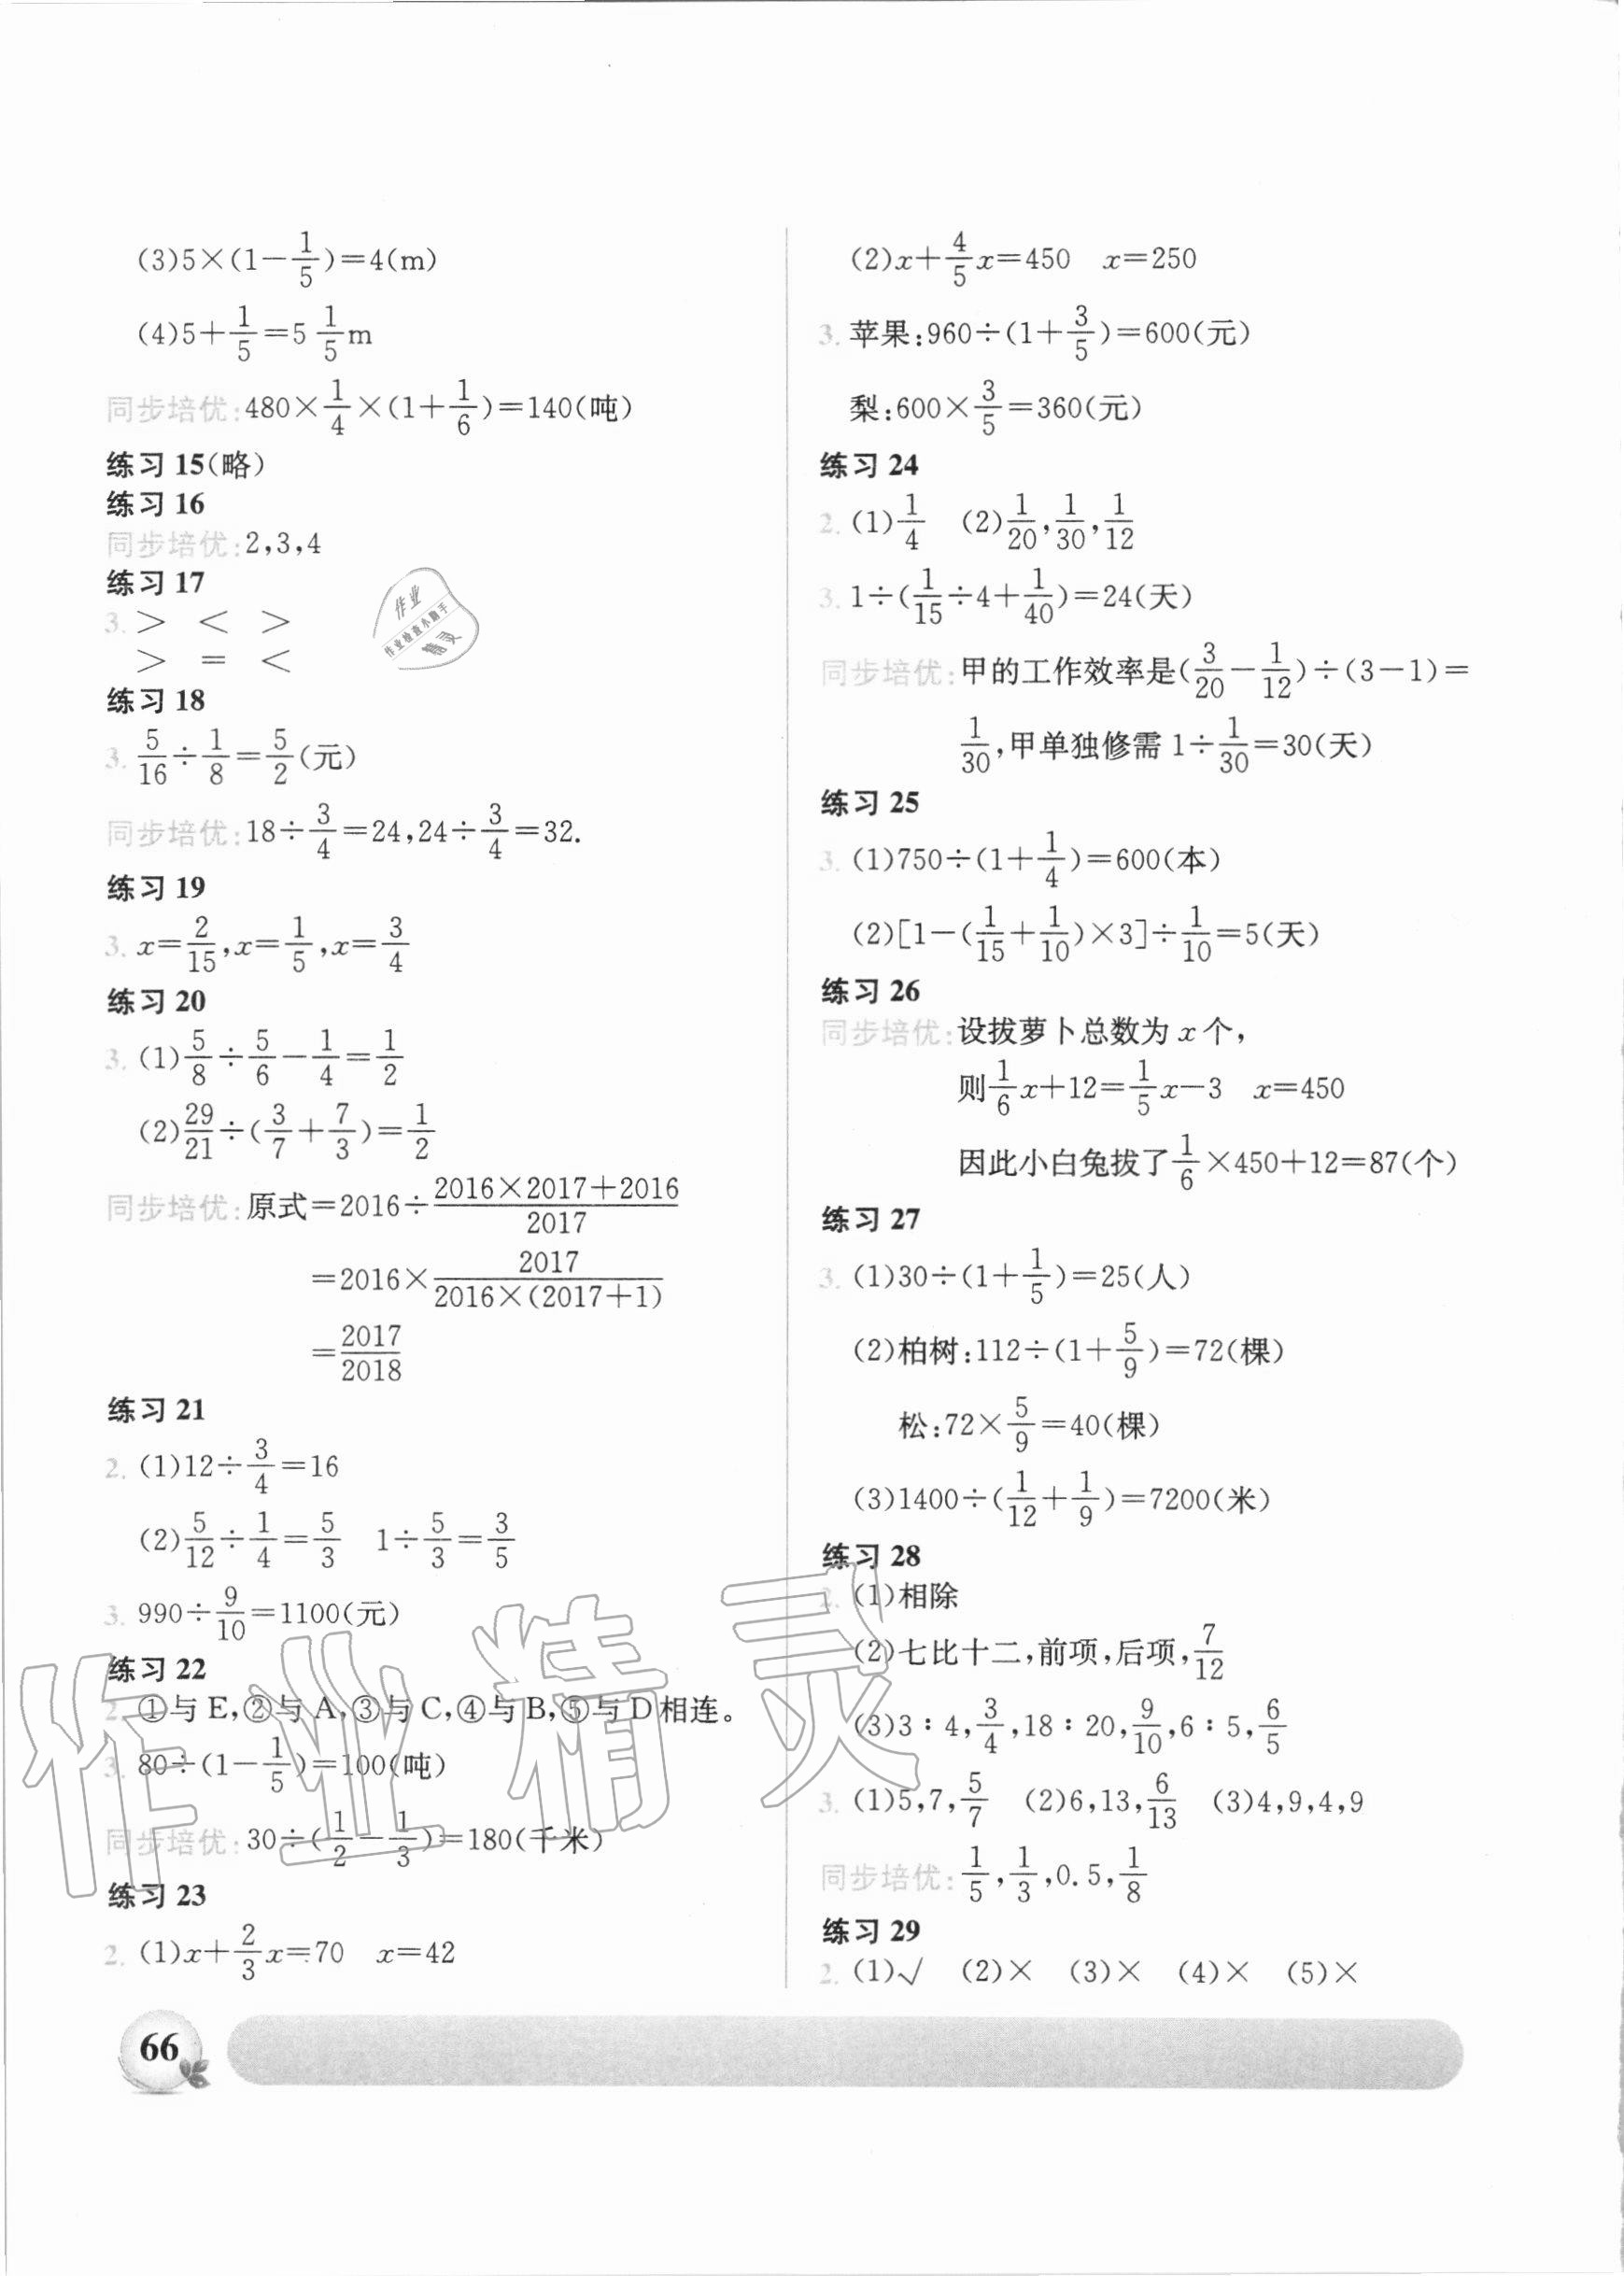 (3)5×(1−1/5)=4(m)
(4)5+1/5=5 1/5m
同步培优:480×1/4×(1+1/6)=140(吨)
练习 15(略)
练习 16
同步培优:2,3,4
练习 17
3. > < >
> = <
练习 18
3. 5/16÷1/8=5/2(元)
同步培优:18÷3/4=24,24÷3/4=32.
练习 19
3. x=2/15,x=1/5,x=3/4
练习 20
3. (1)5/8÷5/6−1/4=1/2
(2)29/21÷(3/7+7/3)=1/2
同步培优:原式=2016÷(2016×2017+2016)/2017
=2016×2017/(2016×(2017+1))
=2017/2018
练习 21
2. (1)12÷3/4=16
(2)5/12÷1/4=5/3 1÷5/3=3/5
3. 990÷9/10=1100(元)
练习 22
2. ①与 E,②与 A,③与 C,④与 B,⑤与 D 相连。
3. 80÷(1−1/5)=100(吨)
同步培优:30÷(1/2−1/3)=180(千米)
练习 23
2. (1)x+2/3x=70 x=42
(2)x+4/5x=450 x=250
3. 苹果:960÷(1+3/5)=600(元)
梨:600×3/5=360(元)
练习 24
2. (1)1/4 (2)1/20,1/30,1/12
3. 1÷(1/15÷4+1/40)=24(天)
同步培优:甲的工作效率是(3/20−1/12)÷(3−1)=
1/30,甲单独修需 1÷1/30=30(天)
练习 25
3. (1)750÷(1+1/4)=600(本)
(2)[1−(1/15+1/10)×3]÷1/10=5(天)
练习 26
同步培优:设拔萝卜总数为 x 个,
则1/6x+12=1/5x−3 x=450
因此小白兔拔了1/6×450+12=87(个)
练习 27
3. (1)30÷(1+1/5)=25(人)
(2)柏树:112÷(1+5/9)=72(棵)
松:72×5/9=40(棵)
(3)1400÷(1/12+1/9)=7200(米)
练习 28
2. (1)相除
(2)七比十二,前项,后项,7/12
(3)3∶4,3/4,18∶20,9/10,6∶5,6/5
3. (1)5,7,5/7 (2)6,13,6/13 (3)4,9,4,9
同步培优:1/5,1/3,0.5,1/8
练习 29
2. (1)√ (2)× (3)× (4)× (5)×
66
作业
作业检查小助手
精灵
作业精灵